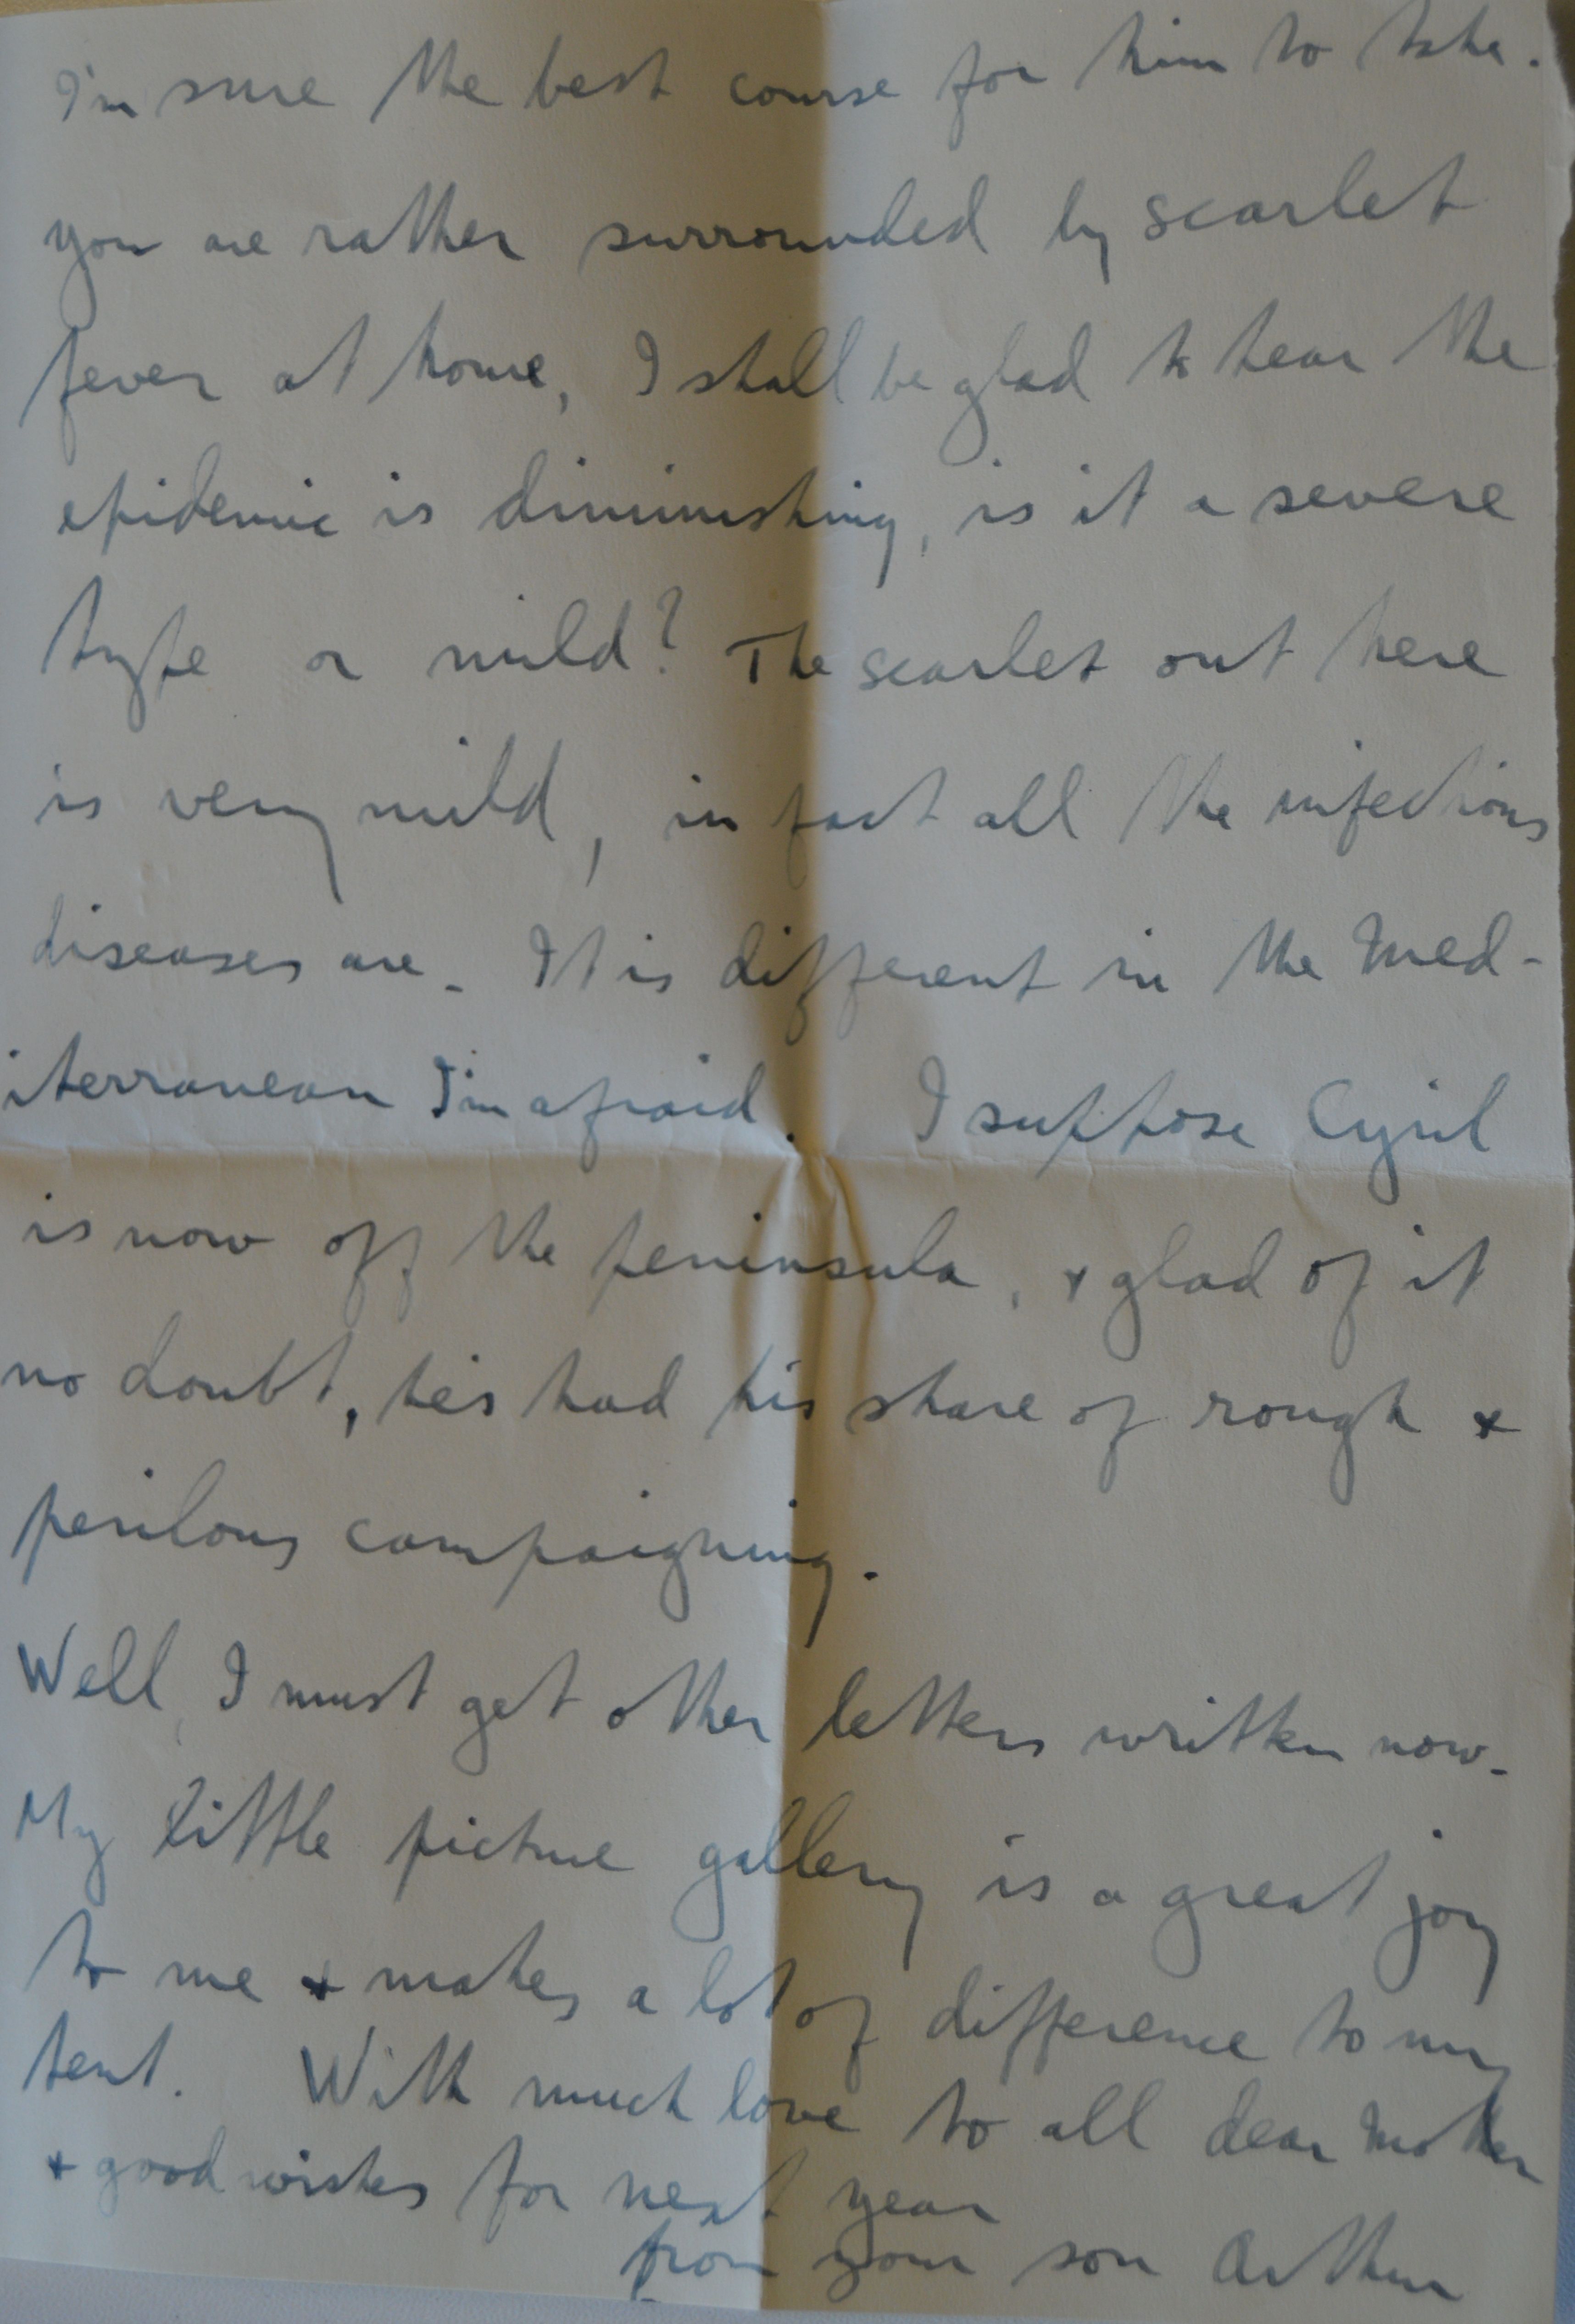 I'm sure the best course for him to take.
you are rather surrounded by scarlet
fever at home, I shall be glad to hear the
epidemic is diminishing, is it a severe
type or mild? The scarlet out here
is very mild, in fact all the infectious
diseases are. It is different in the Med-
iterranean I'm afraid. I suppose Cyril
is now off the peninsula, & glad of it
no doubt, he's had his share of rough &
perilous campaigning.
Well, I must get other letters written now.
My little picture gallery is a great joy
to me & makes a lot of difference to my
tent. With much love to all dear Mother
& good wishes for next year
from your son Arthur